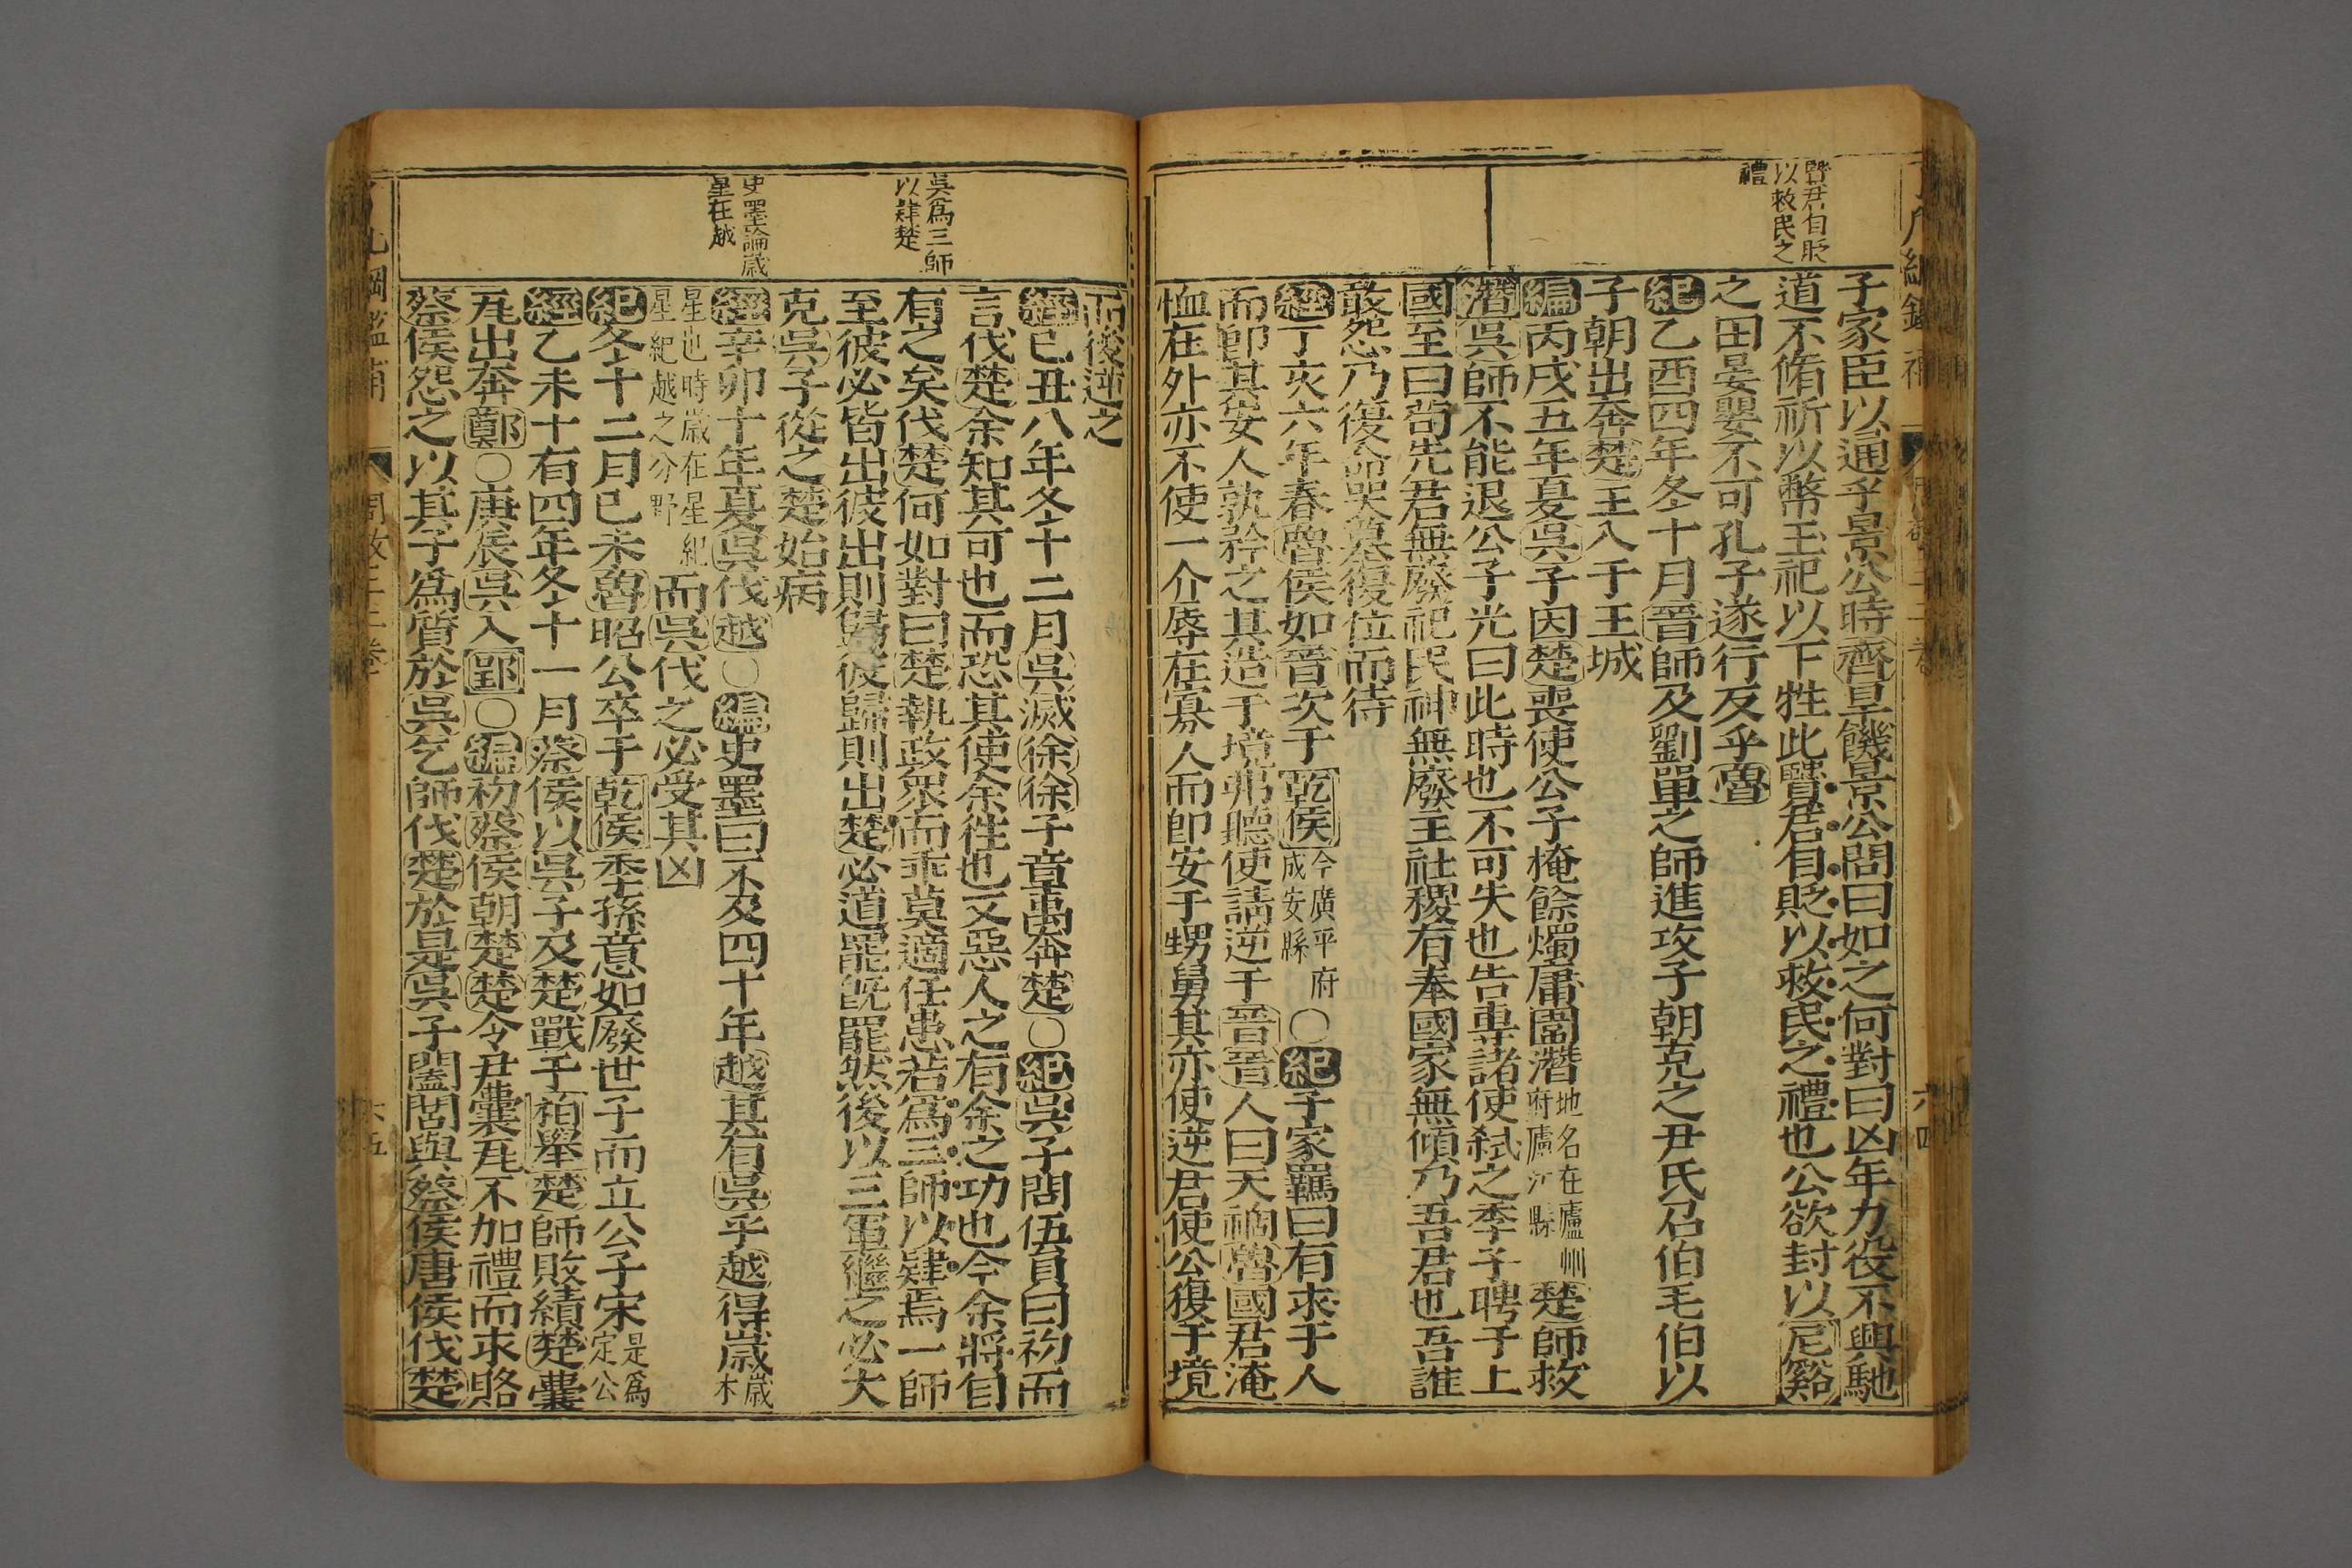 賢君自貶
以救民之
禮
子家臣以通乎景公時齊旱饑景公問曰如之何對曰凶年力役不興馳
道不脩祈以幣玉祀以下牲此賢君自貶以救民之禮也公欲封以尼谿
之田晏嬰不可孔子遂行反乎魯
紀乙酉四年冬十月晉師及劉單之師進攻子朝克之尹氏召伯毛伯以
子朝出奔楚王入于王城
編丙戌五年夏吳子因楚喪使公子掩餘燭庸圍潛地名在廬州府廬江縣楚師救
潛吳師不能退公子光曰此時也不可失也告專諸使弒之季子聘于上
國至曰茍先君無廢祀民神無廢主社稷有奉國家無傾乃吾君也吾誰
敢怨乃復命哭墓復位而待
經丁亥六年春魯侯如晉次于乾侯今廣平府成安縣○紀子家羈曰有求于人
而卽其安人孰矜之其造于境弗聽使請逆于晉晉人曰天禍魯國君淹
恤在外亦不使一介辱在寡人而卽安于甥舅其亦使逆君使公復于境
六四
吳爲三師
以肄楚
史墨論歲
星在越
而後逆之
經己丑八年冬十二月吳滅徐徐子章禹奔楚○紀吳子問伍員曰初而
言伐楚余知其可也而恐其使余徃也又惡人之有余之功也今余將自
有之矣伐楚何如對曰楚執政衆而乖莫適任患若爲三師以肄焉一師
至彼必皆出彼出則歸彼歸則出楚必道罷旣罷然後以三軍繼之必大
克吳子從之楚始病
經辛卯十年夏吳伐越○編史墨曰不及四十年越其有吳乎越得歲歲木
星也時歲在星紀星紀越之分野而吳伐之必受其凶
紀冬十二月己未魯昭公卒于乾侯季孫意如廢世子而立公子宋是爲定公
經乙未十有四年冬十一月蔡侯以吳子及楚戰于栢舉楚師敗績楚囊
瓦出奔鄭○庚辰吳入郢○編初蔡侯朝楚楚令尹囊瓦不加禮而求賂
蔡侯怨之以其子爲質於吳乞師伐楚於是吳子闔閭與蔡侯唐侯伐楚
周敬王二卷
六五